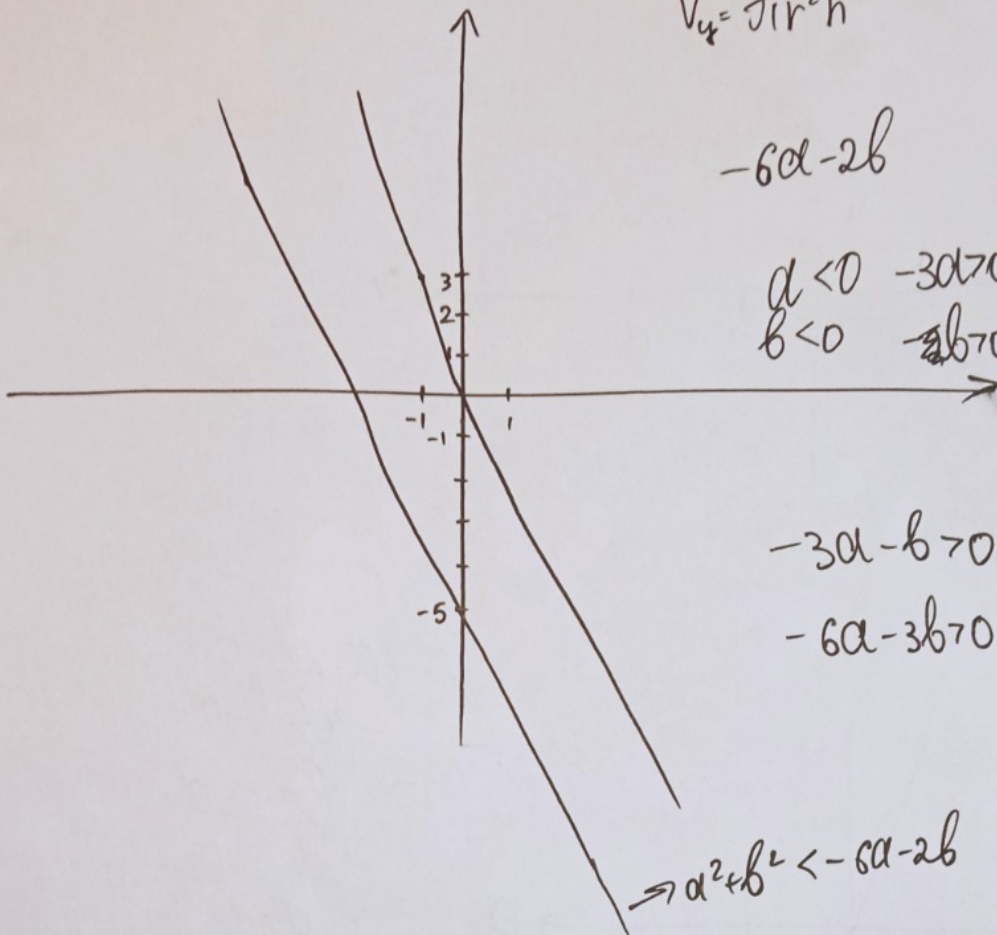 V_y = πr²h
-6a-2b
a<0 -3a>0
b<0 -b>0
3
2
1
-1 1
-1
-5
-3a-b>0
-6a-3b>0
→ a²+b² < -6a-2b